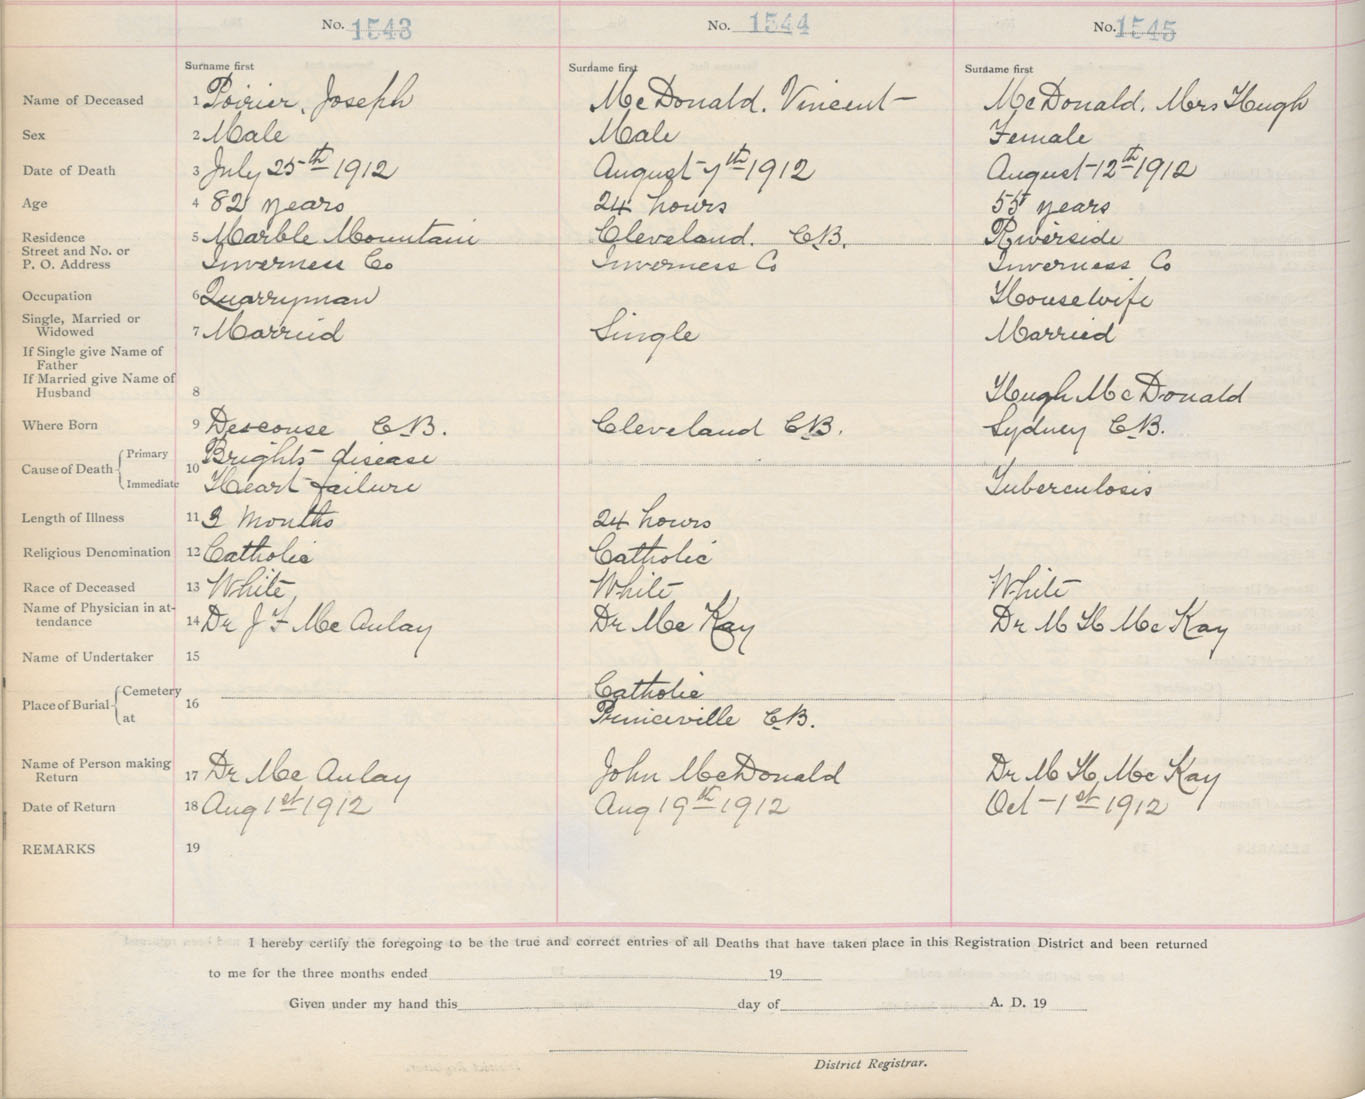 No. 1543 No. 1544 No. 1545
Surname first Surname first Surname first
Name of Deceased 1 Poirier, Joseph McDonald. Vincent McDonald. Mrs Hugh
Sex 2 Male Male Female
Date of Death 3 July 25th 1912 August 7th 1912 August 12th 1912
Age 4 82 years 24 hours 55 years
Residence 5 Marble Mountain Cleveland. C.B. Riverside
Street and No. or
P. O. Address Inverness Co Inverness Co Inverness Co
Occupation 6 Quarryman Housewife
Single, Married or
Widowed 7 Married Single Married
If Single give Name of
Father
If Married give Name of
Husband 8 Hugh McDonald
Where Born 9 Descouse C.B. Cleveland C.B. Sydney C.B.
Cause of Death Primary 10 Brights disease
Immediate Heart failure Tuberculosis
Length of Illness 11 3 Months 24 hours
Religious Denomination 12 Catholic Catholic
Race of Deceased 13 White White White
Name of Physician in at-
tendance 14 Dr J F McAulay Dr McKay Dr M H McKay
Name of Undertaker 15
Place of Burial Cemetery 16 Catholic
at Princeville C.B.
Name of Person making
Return 17 Dr McAulay John McDonald Dr M H McKay
Date of Return 18 Aug 1st 1912 Aug 19th 1912 Oct 1st 1912
REMARKS 19
I hereby certify the foregoing to be the true and correct entries of all Deaths that have taken place in this Registration District and been returned
to me for the three months ended 19
Given under my hand this day of A. D. 19
District Registrar.